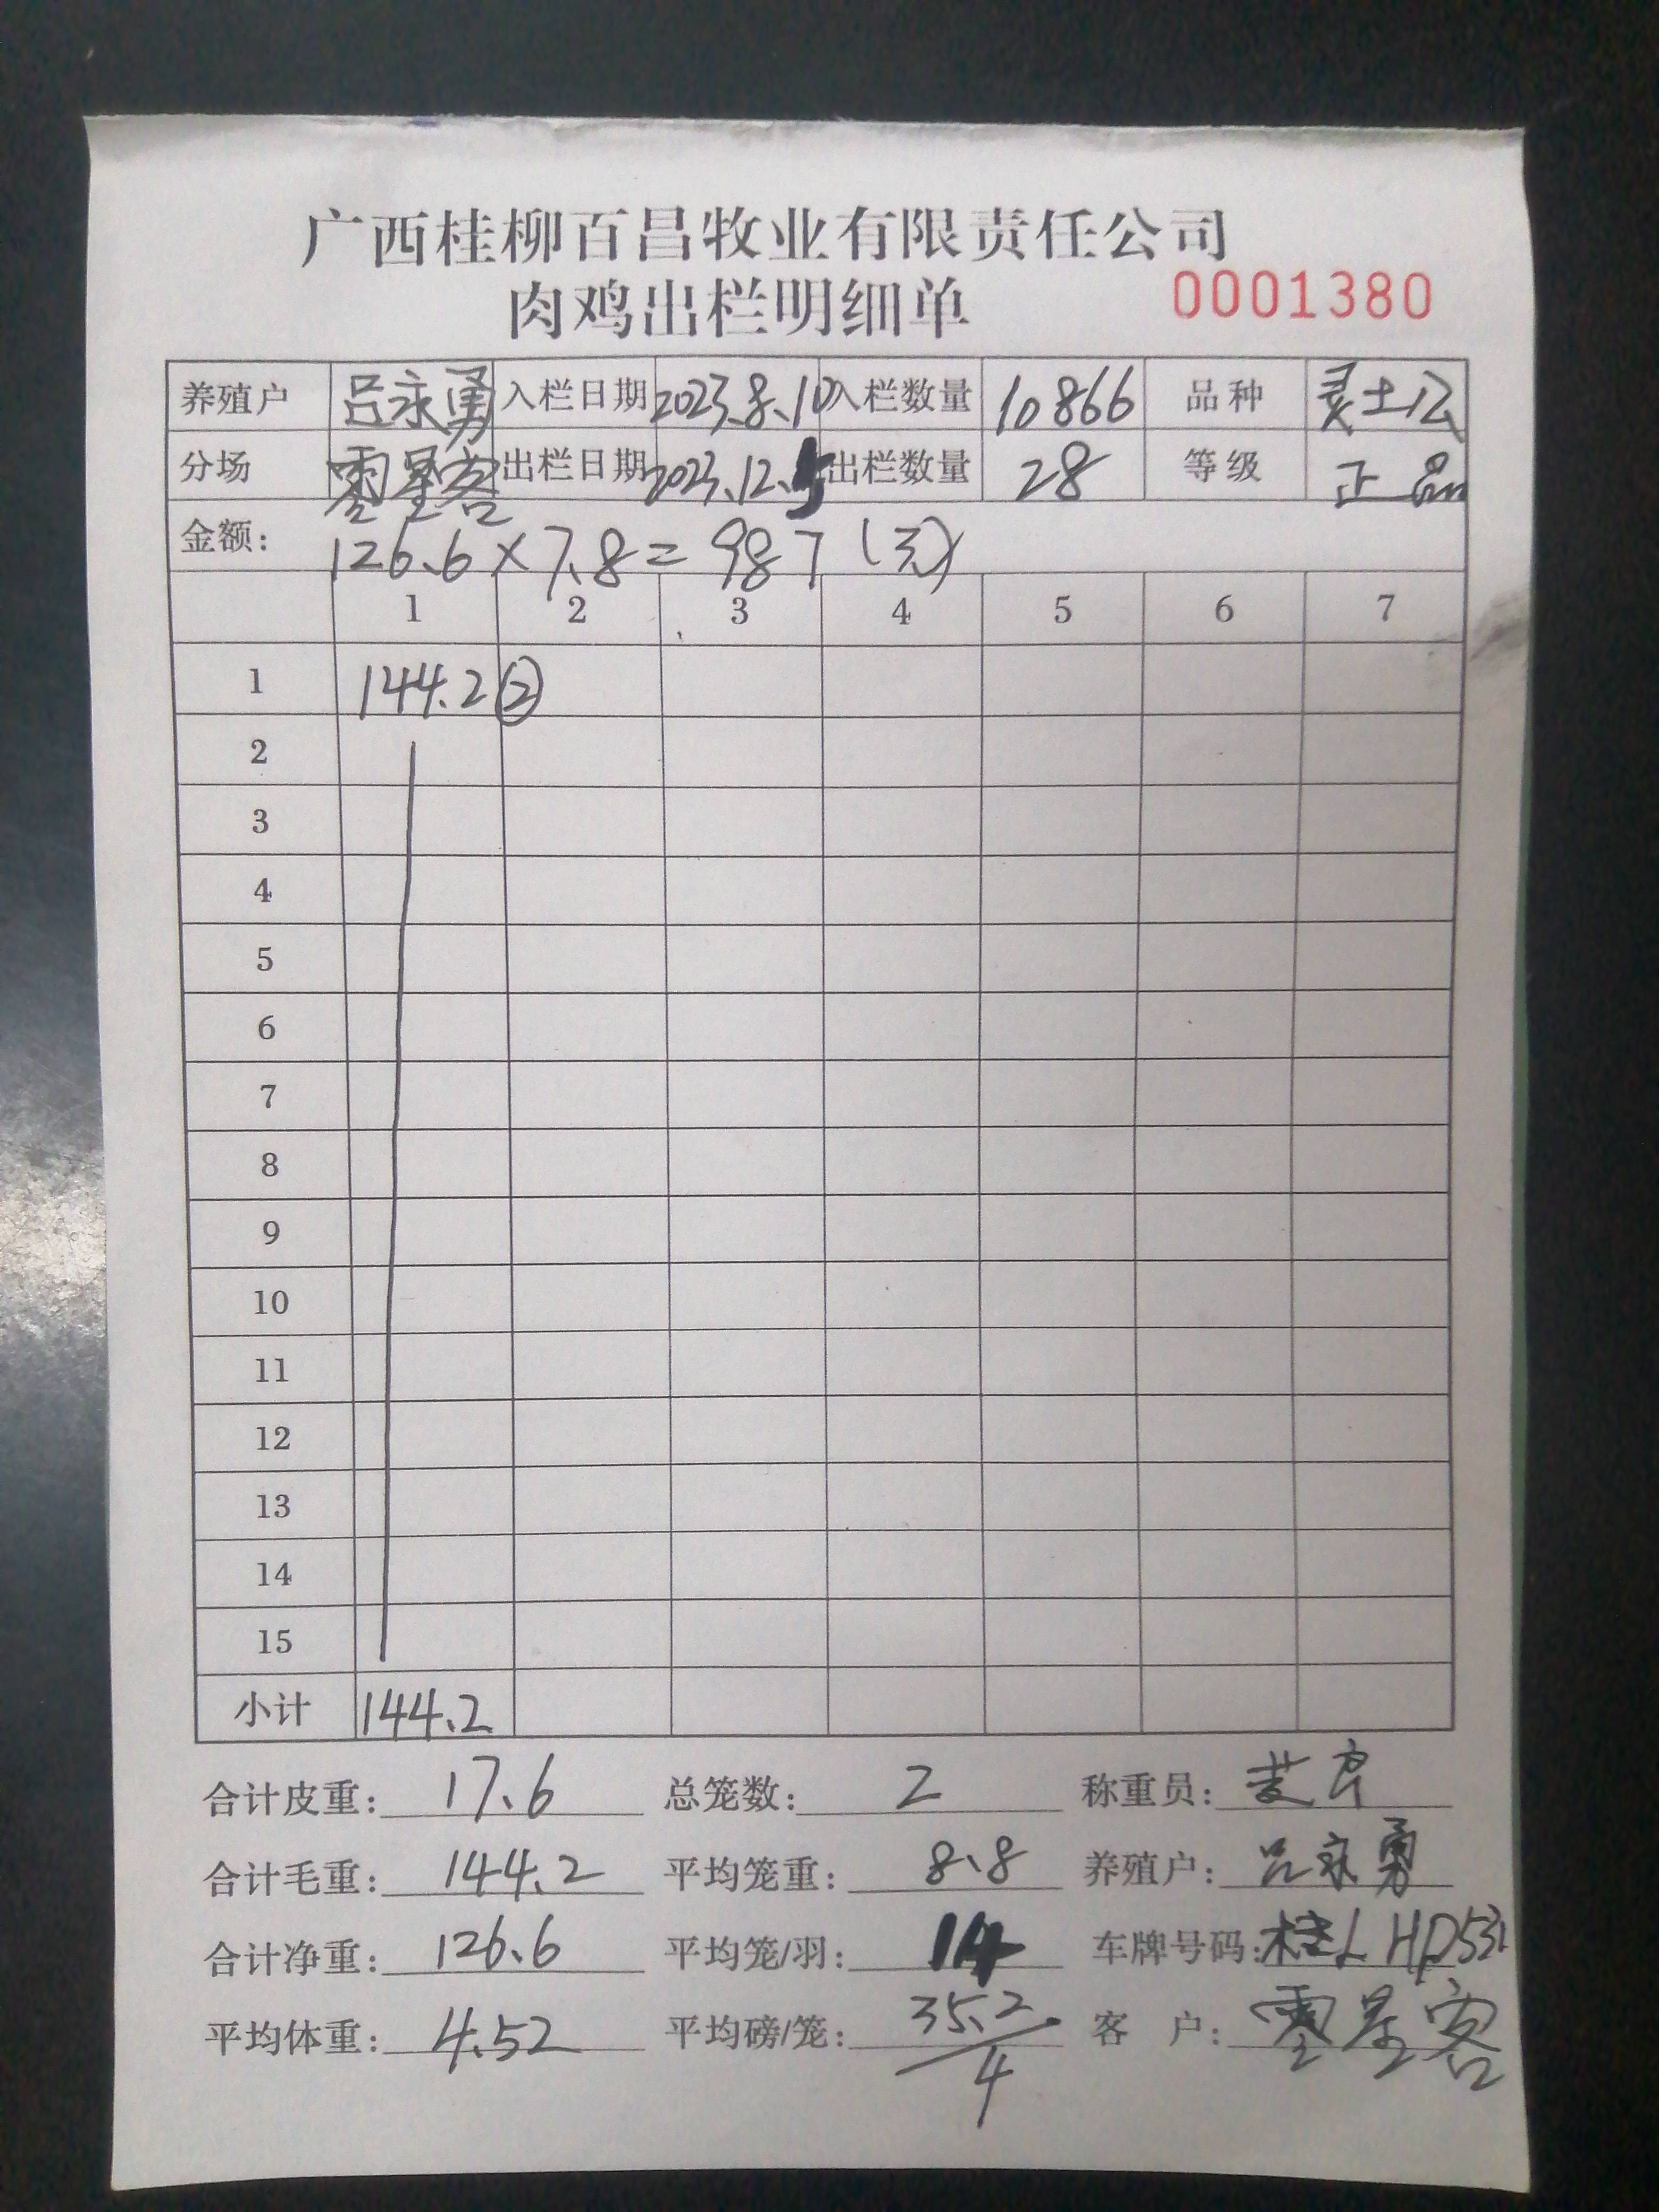 广西桂柳百昌牧业有限责任公司
肉鸡出栏明细单 0001380
养殖户 吕永勇 入栏日期 2023.8.10 入栏数量 10866 品种 灵土公
分场 零星客 出栏日期 2023.12.5 出栏数量 28 等级 正品
金额: 126.6×7.8=987(元)
1 2 3 4 5 6 7
1 144.2 ②
2
3
4
5
6
7
8
9
10
11
12
13
14
15
小计 144.2
合计皮重: 17.6 总笼数: 2 称重员:
合计毛重: 144.2 平均笼重: 8.8 养殖户: 吕永勇
合计净重: 126.6 平均笼/羽: 14 车牌号码: 桂L HD531
平均体重: 4.52 平均磅/笼: 35.2/4 客 户: 零星客